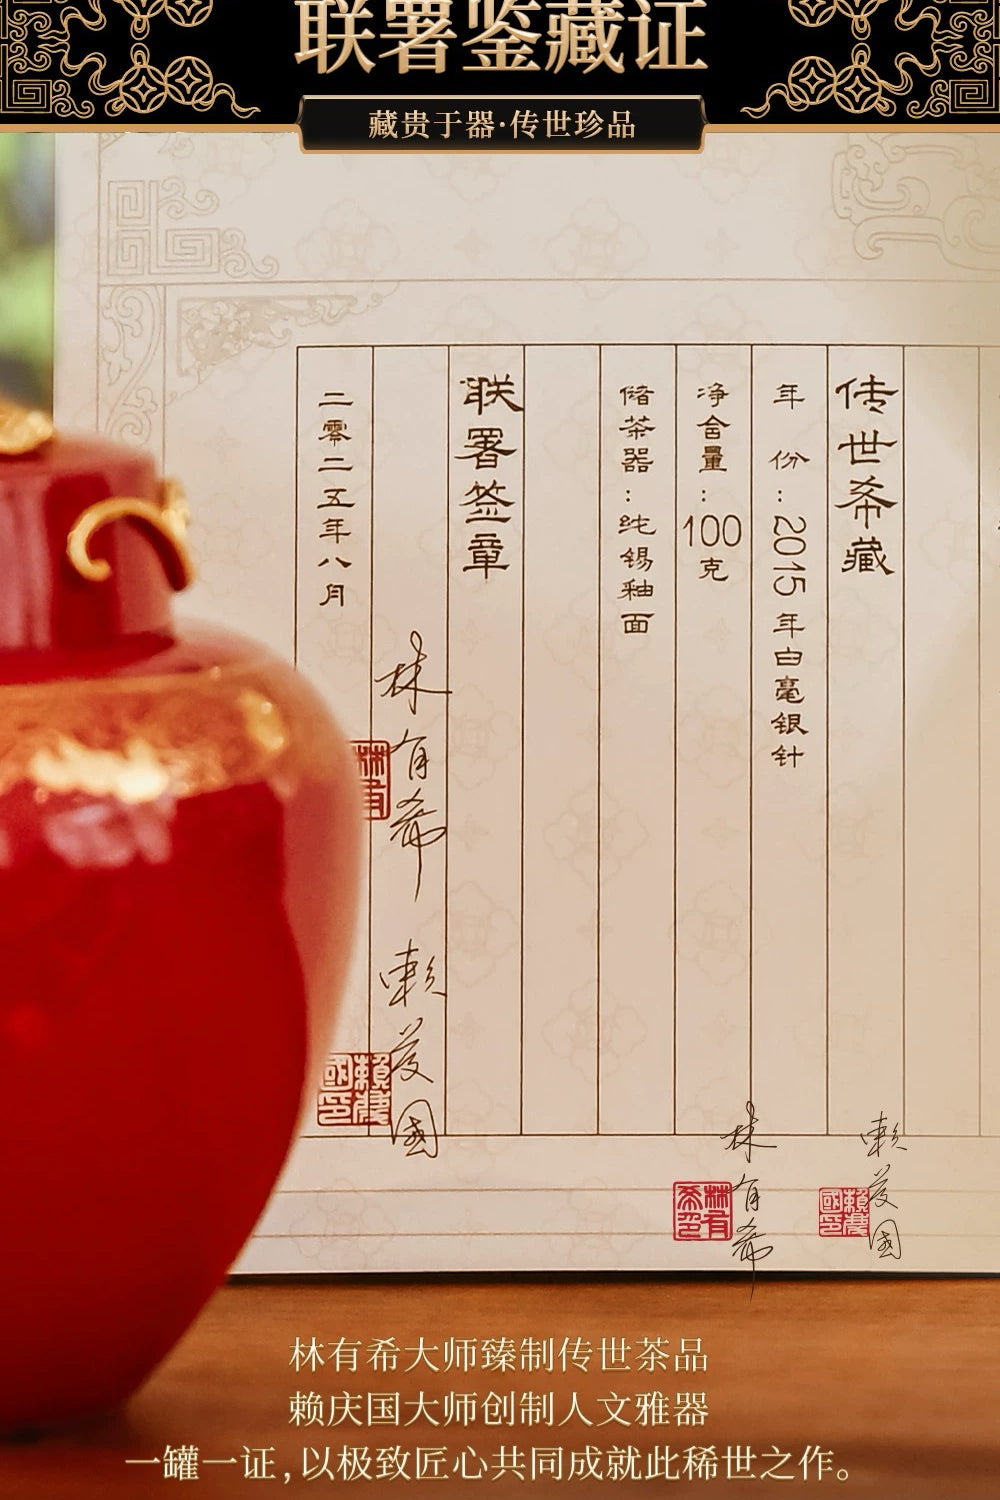 联署鉴藏证
藏贵于器·传世珍品
传世希藏
年份:2015年白毫银针
净含量:100克
储茶器:纯锡釉面
联署签章
林有希 赖庆国
二零二五年八月
林有
賴慶國印
林有希
林有希印
赖庆国
賴慶國印
林有希大师臻制传世茶品
赖庆国大师创制人文雅器
一罐一证,以极致匠心共同成就此稀世之作。